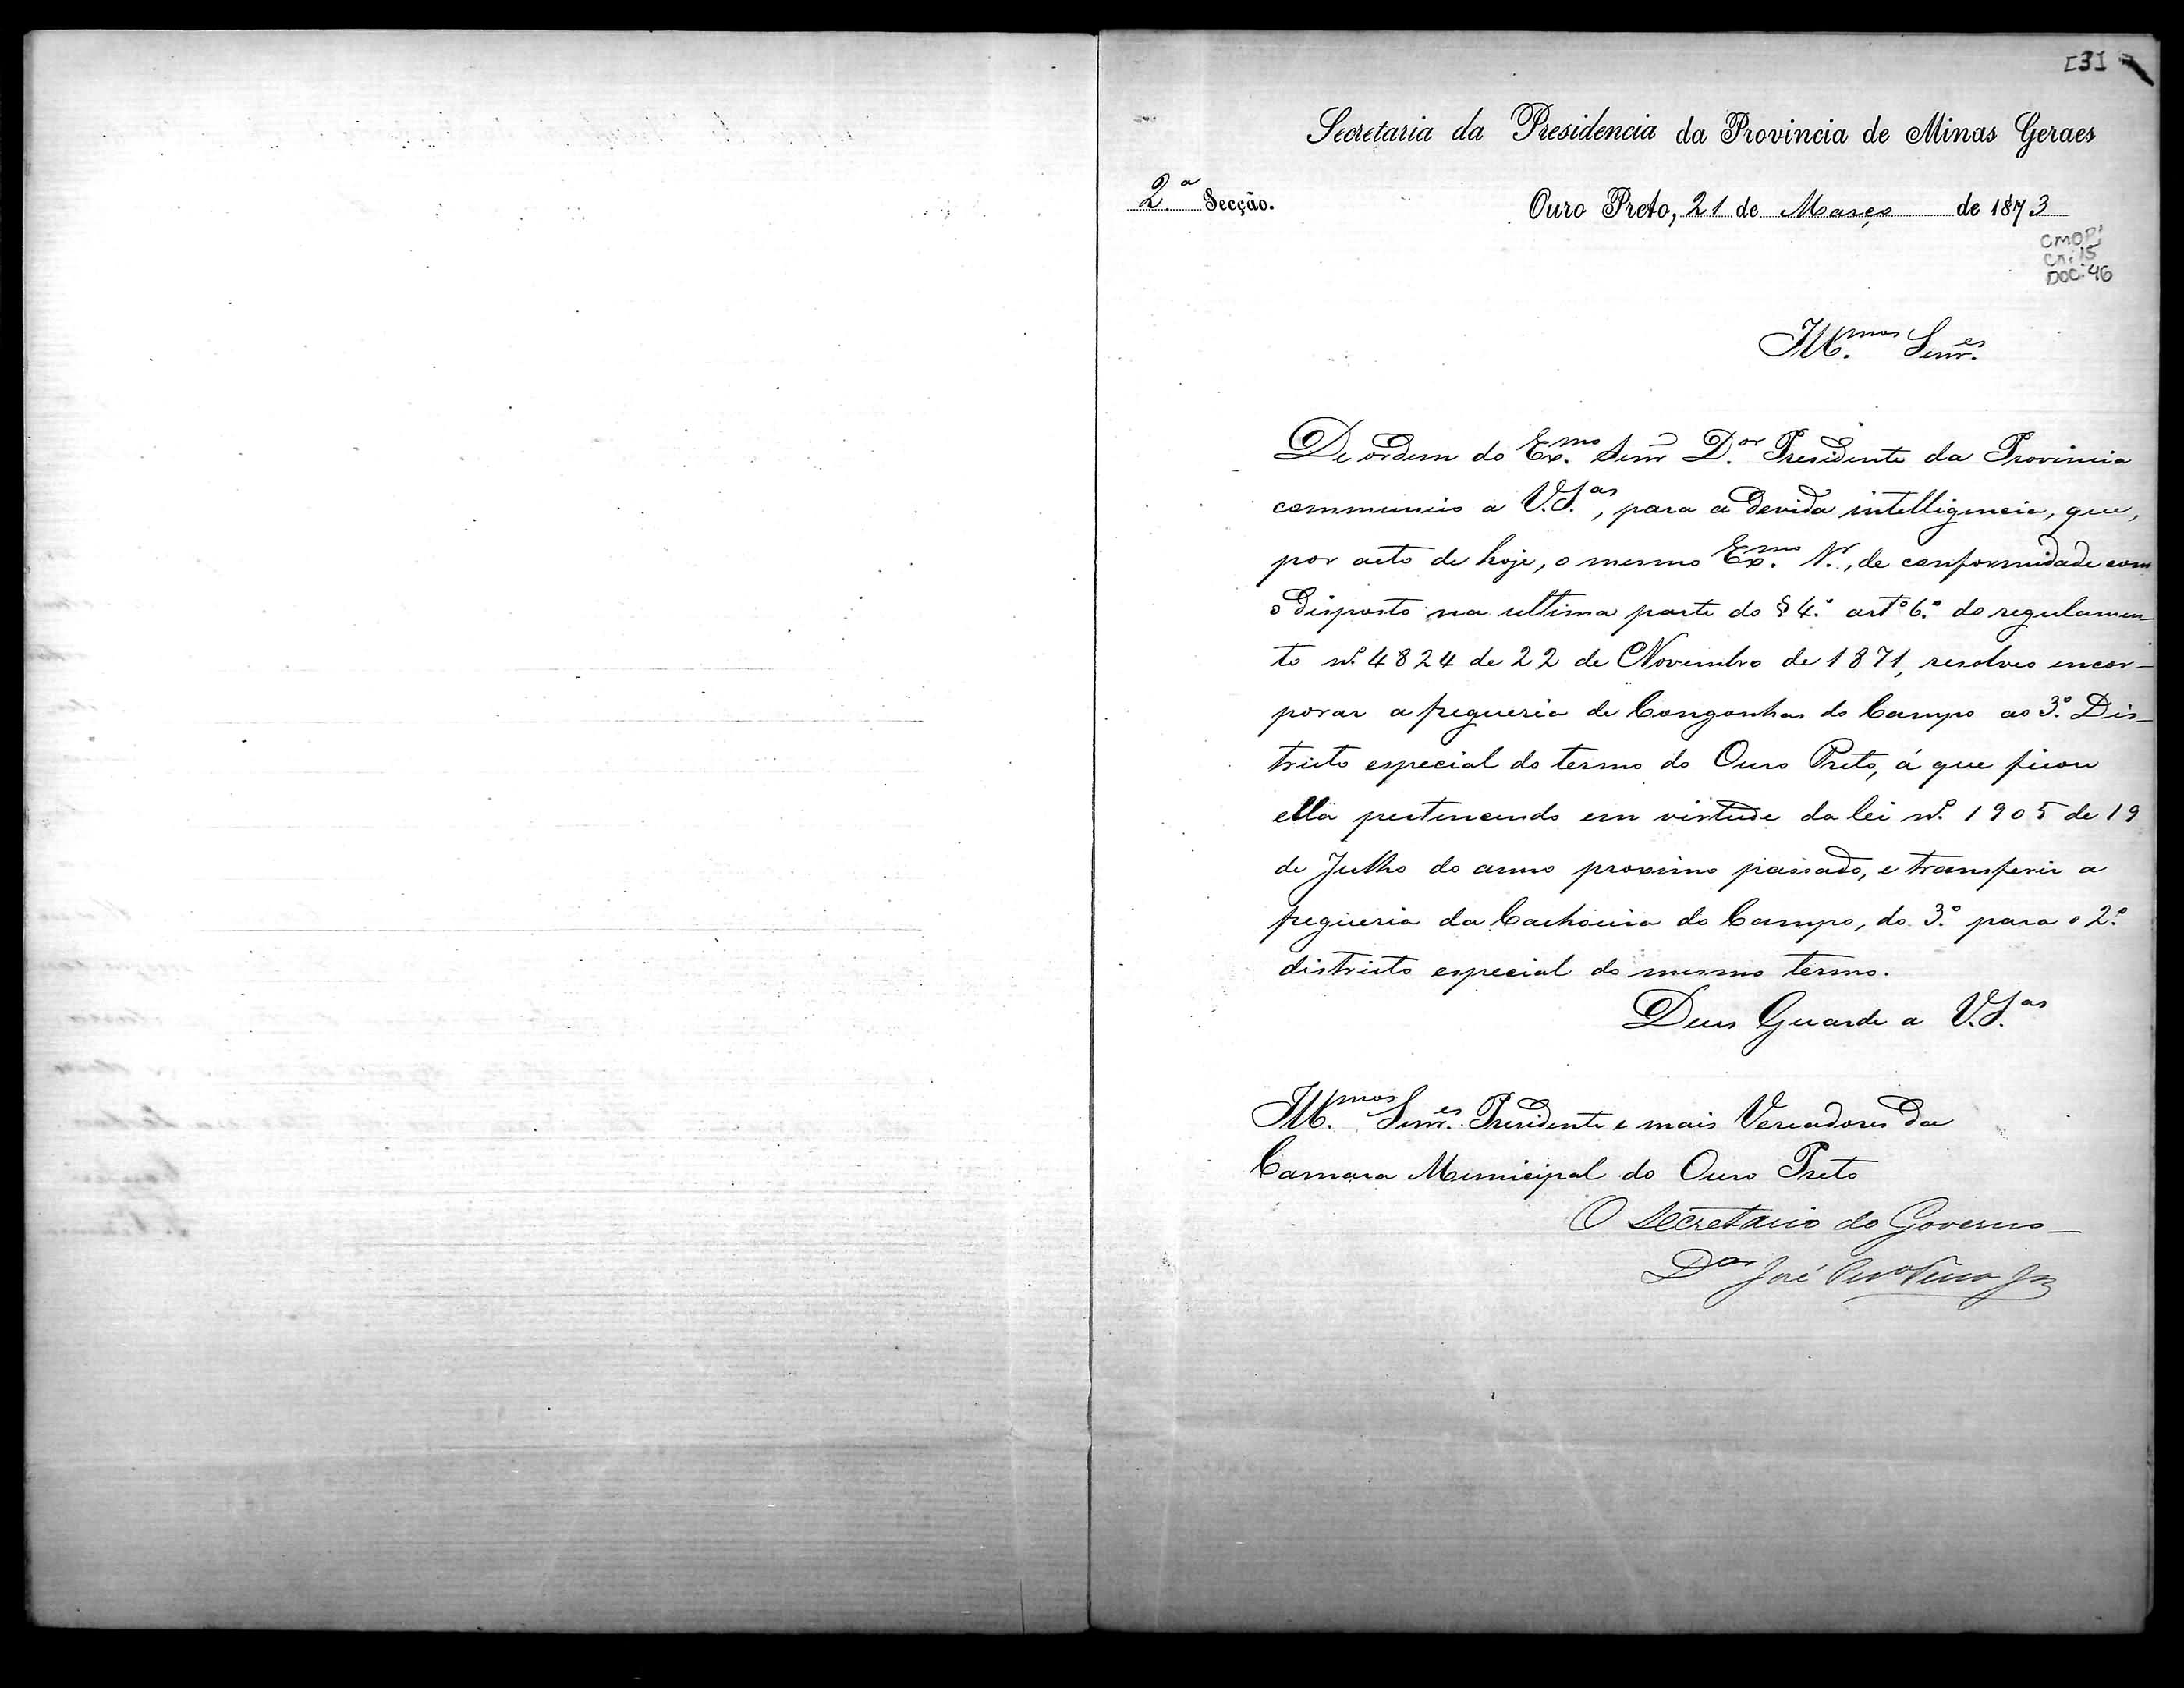 [3]
Secretaria da Presidencia da Provincia de Minas Geraes
2.ª Secção.
Ouro Preto, 21 de Março de 1873
CMOP;
CX: 15
DOC: 46
Ill.mos Senr.es
De ordem do Ex.mo Senr D.or Presidente da Provincia
communico a V.S.as, para a devida intelligencia, que,
por acto de hoje, o mesmo Ex.mo Sr., de conformidade com
o disposto na ultima parte do § 4.º art.º 6.º do regulamen-
to nº. 4824 de 22 de Novembro de 1871, resolveo encor-
porar a freguesia de Congonhas do Campo ao 3.º Dis-
tricto especial do termo do Ouro Preto, á que ficou
ella pertencendo em virtude da lei nº. 1905 de 19
de Julho do anno proximo passado, e transferir a
freguesia da Cachoeira do Campo, do 3.º para o 2.º
districto especial do mesmo termo.
Deus Guarde a V.S.as
Ill.mos Senr.es Presidente e mais Vereadores da
Camara Municipal do Ouro Preto
O Secretario do Governo
D.or José